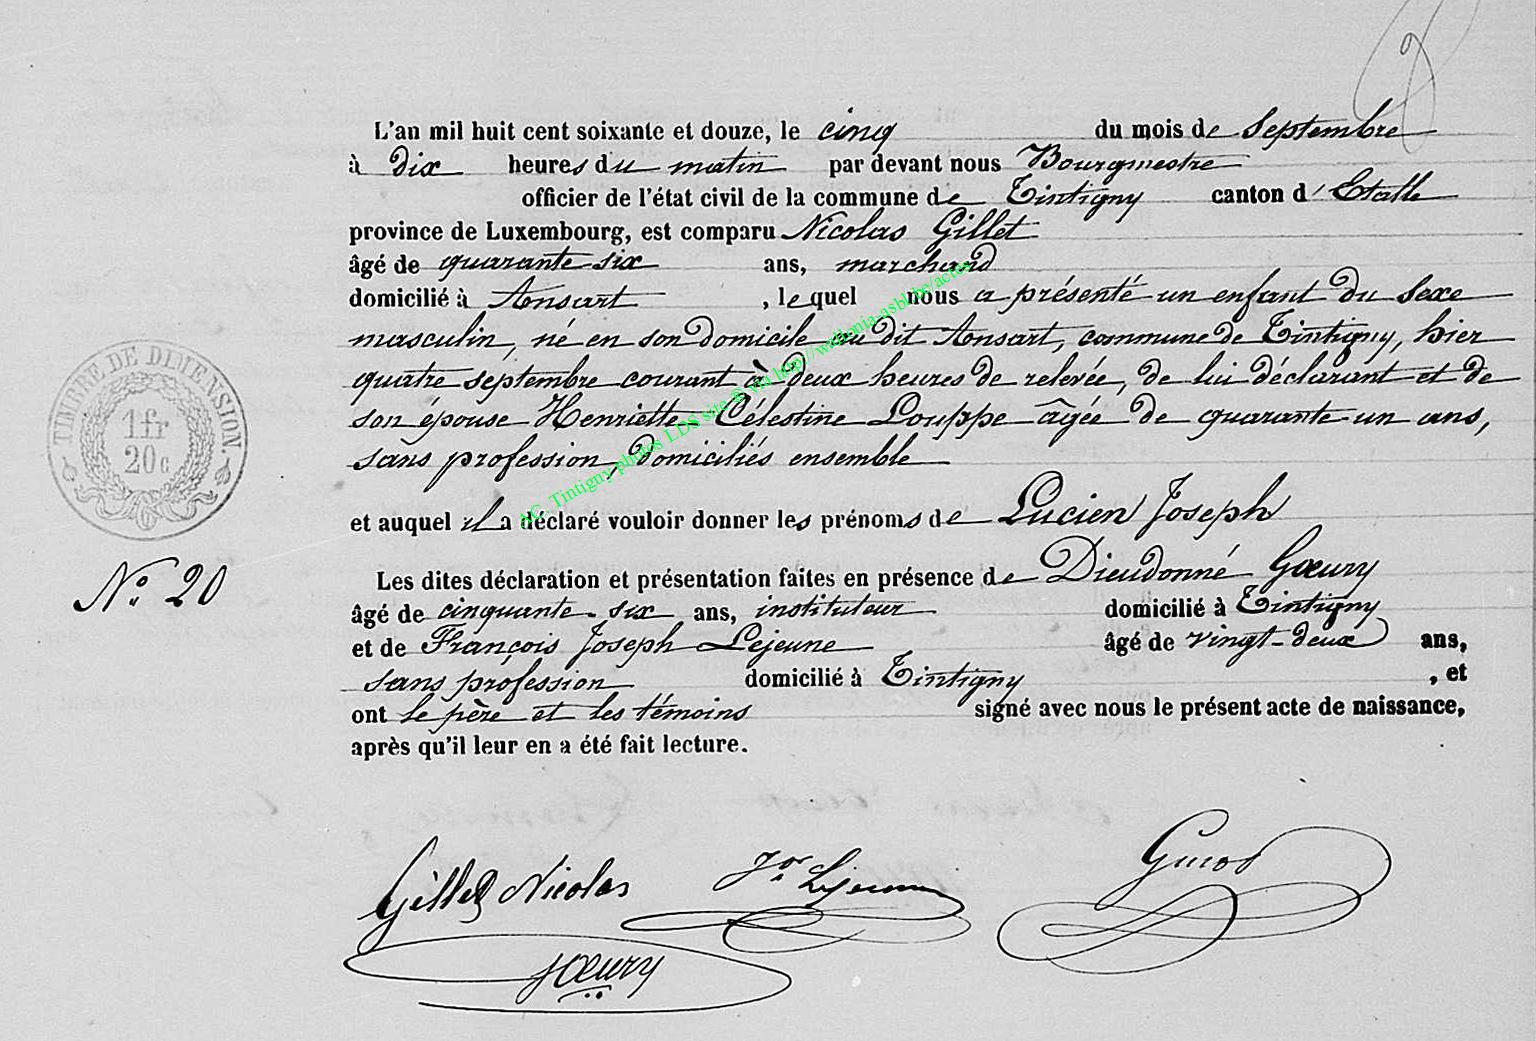 L'an mil huit cent soixante et douze, le cinq du mois de Septembre
à dix heures du matin par devant nous Bourgmestre
officier de l'état civil de la commune de Tintigny canton d'Etalle
province de Luxembourg, est comparu Nicolas Gillet
âgé de quarante-six ans, marchand
domicilié à Ansart, lequel nous a présenté un enfant du sexe
masculin, né en son domicile au dit Ansart, commune de Tintigny, hier
quatre septembre courant à deux heures de relevée, de lui déclarant et de
son épouse Henriette Célestine Louppe âgée de quarante-un ans,
sans profession, domiciliés ensemble
et auquel il a déclaré vouloir donner les prénoms de Lucien Joseph
Les dites déclaration et présentation faites en présence de Dieudonné Gœury
âgé de cinquante-six ans, instituteur domicilié à Tintigny
et de François Joseph Lejeune âgé de vingt-deux ans,
sans profession domicilié à Tintigny, et
ont le père et les témoins signé avec nous le présent acte de naissance,
après qu'il leur en a été fait lecture.
TIMBRE DE DIMENSION.
1 fr
20 c
N° 20
AC. Tintigny photos LDS site © via http://wallonia-asbl.be/actes
Gillet Nicolas
Jos Lejeune
Gœury